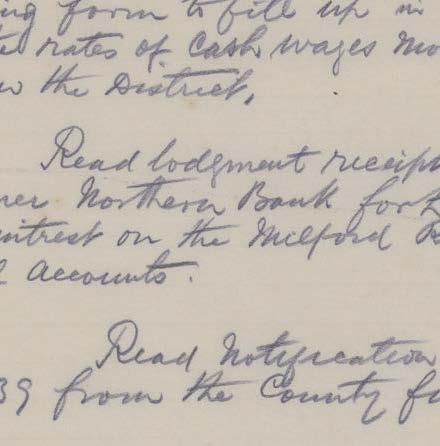 ing form to fill up in
rates of Cash wages mo
the District,
Read lodgment receipt
Northern Bank for
intrest on the Milford R
accounts.
Read Notification
39 from the County fu